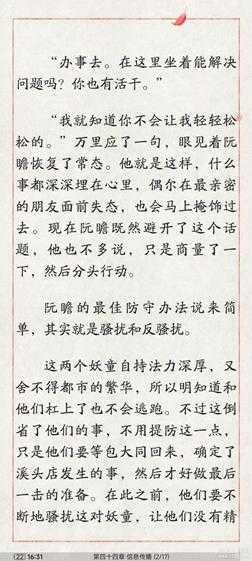 “办事去。在这里坐着能解决
问题吗？你也有活干。”
“我就知道你不会让我轻轻松
松的。”万里应了一句，眼见着阮
瞻恢复了常态。他就是这样，什么
事都深深埋在心里，偶尔在最亲密
的朋友面前失态，也会马上掩饰过
去。现在阮瞻既然避开了这个话
题，他也不多说，只是商量了一
下，然后分头行动。
阮瞻的最佳防守办法说来简
单，其实就是骚扰和反骚扰。
这两个妖童自持法力深厚，又
舍不得都市的繁华，所以明知道和
他们杠上了也不会逃跑。不过这倒
省了他们的事，不用提防这一点，
只是他们要等包大同回来，确定了
溪头店发生的事，然后才好做最后
一击的准备。在此之前，他们要不
断地骚扰这对妖童，让他们没有精
(22) 16:31 第四十四章 信息传播 (2/17)